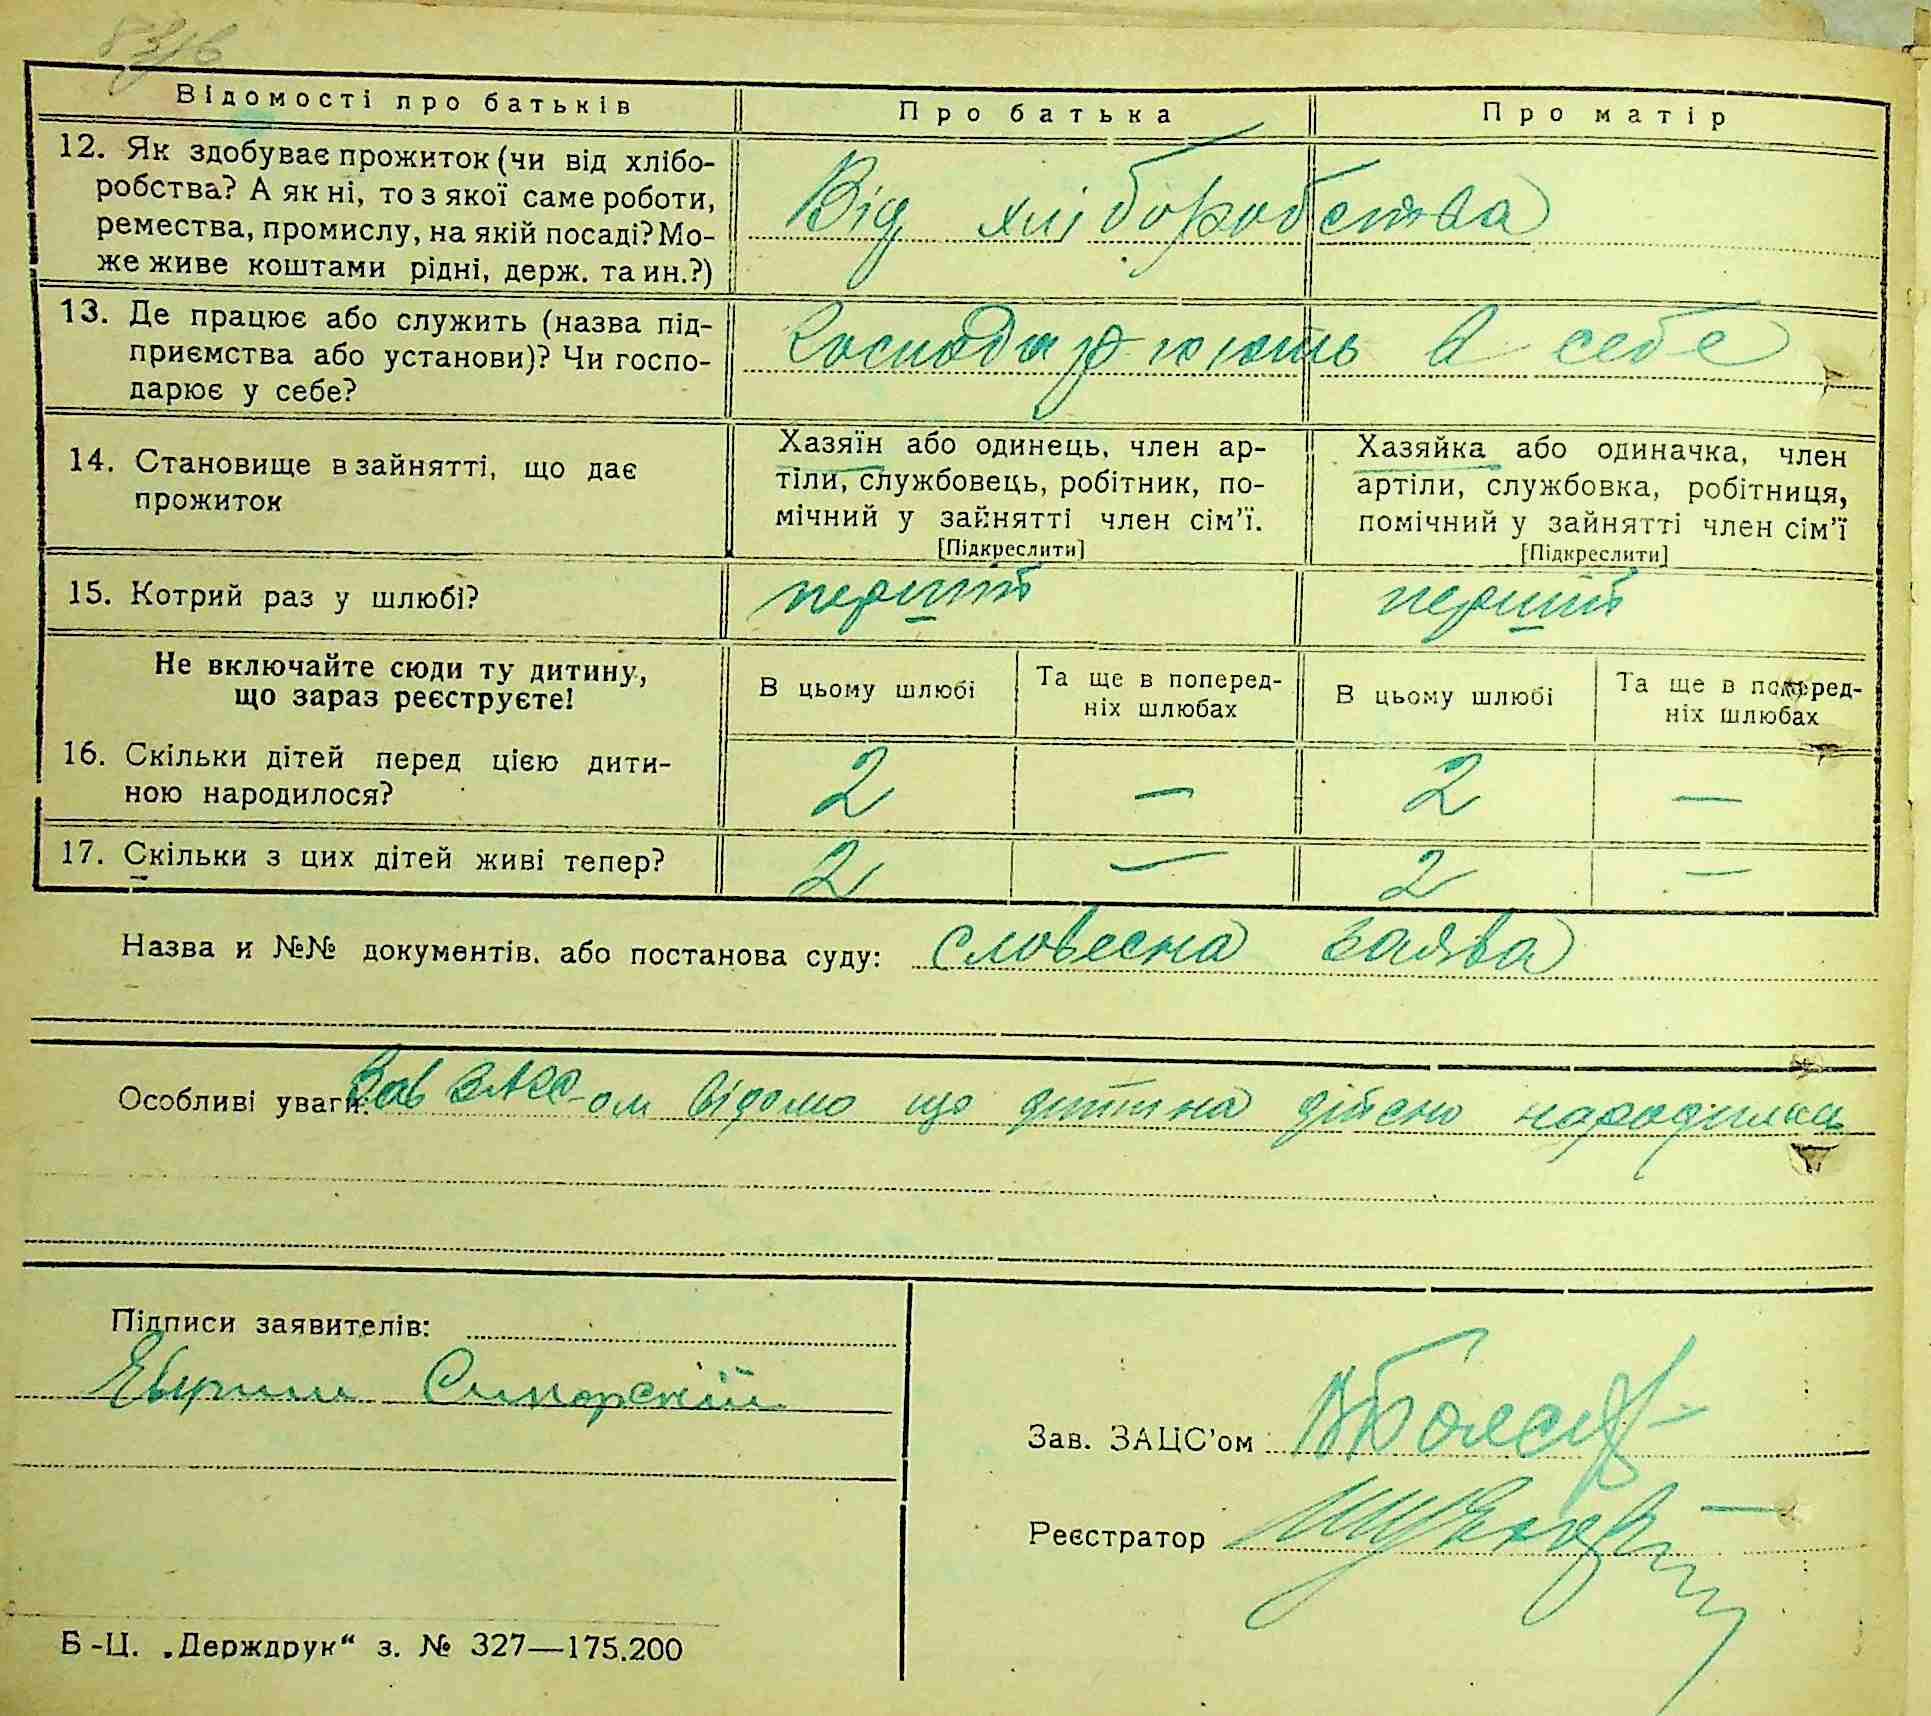 Відомості про батьків Про батька Про матір
12. Як здобуває прожиток (чи від хлібо-
робства? А як ні, то з якої саме роботи,
ремества, промислу, на якій посаді? Мо-
же живе коштами рідні, держ. та ин.?)
Від хліборобства
13. Де працює або служить (назва під-
приємства або установи)? Чи госпо-
дарює у себе?
Господарюють в себе
14. Становище в зайнятті, що дає
прожиток
Хазяїн або одинець, член ар-
тіли, службовець, робітник, по-
мічний у зайнятті член сім’ї.
[Підкреслити]
Хазяйка або одиначка, член
артіли, службовка, робітниця,
помічний у зайнятті член сім’ї
[Підкреслити]
15. Котрий раз у шлюбі? перший перший
Не включайте сюди ту дитину,
що зараз реєструєте!
В цьому шлюбі
Та ще в поперед-
ніх шлюбах
В цьому шлюбі
Та ще в поперед-
ніх шлюбах
16. Скільки дітей перед цією дити-
ною народилося?
2 — 2 —
17. Скільки з цих дітей живі тепер? 2 — 2 —
Назва и №№ документів. або постанова суду: словесна заява
Особливі уваги: Зав ЗАСС-ом відомо що дитина дійсно народилась
Підписи заявителів:
Сикорский
Зав. ЗАЦС’ом
Реєстратор
Б-Ц. „Держдрук“ з. № 327—175.200